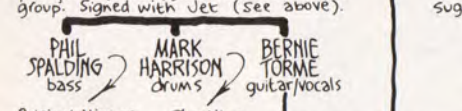 group. Signed with Jet (see above).
sug
PHIL SPALDING
bass
MARK HARRISON
drums
BERNIE TORME
guitar/vocals